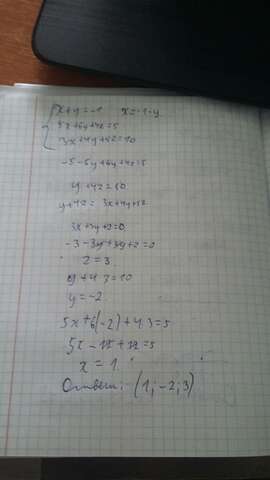 x+y=-1 x=-1-y
5x+6y+4z=5
3x+4y+5z=10
-5-5y+6y+4z=5
y+4z=10
y+4z=3x+4y+5z
3x+3y+z=0
-3-3y+3y+z=0
z=3
y+4·3=10
y=-2
5x+6(-2)+4·3=5
5x-12+12=5
x=1.
Ответ: (1;-2;3)